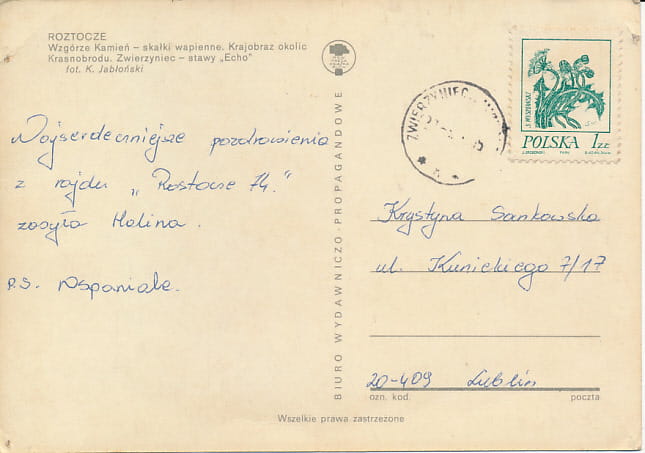 ROZTOCZE
Wzgórze Kamień – skałki wapienne. Krajobraz okolic
Krasnobrodu. Zwierzyniec – stawy „Echo”
fot. K. Jabłoński
Najserdeczniejsze pozdrowienia
z rajdu „Roztocze 74.”
zasyła Halina.
P.S. Wspaniale.
BIURO WYDAWNICZO-PROPAGANDOWE
ZWIERZYNIEC
S. WYSPIAŃSKI
POLSKA 1 ZŁ
Krystyna Sankowska
ul. Kunickiego 7/17
20-409 Lublin
ozn. kod. poczta
Wszelkie prawa zastrzeżone